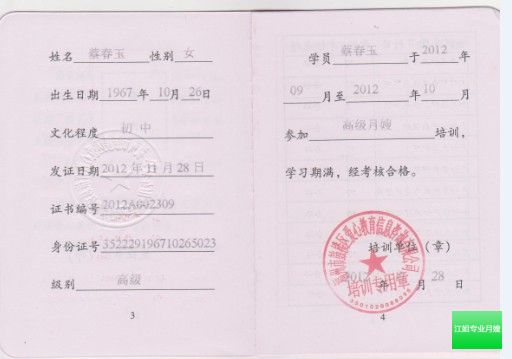 姓名 蔡春玉 性别 女
出生日期 1967 年 10 月 26 日
文化程度 初中
发证日期 2012 年 11 月 28 日
证书编号 2012A002309
身份证号 352229196710265023
级别 高级
3
学员 蔡春玉 于 2012 年
09 月至 2012 年 10 月
参加 高级月嫂 培训，
学习期满，经考核合格。
培训单位（章）
2012 年 月 28
培训专用章
4
江姐专业月嫂